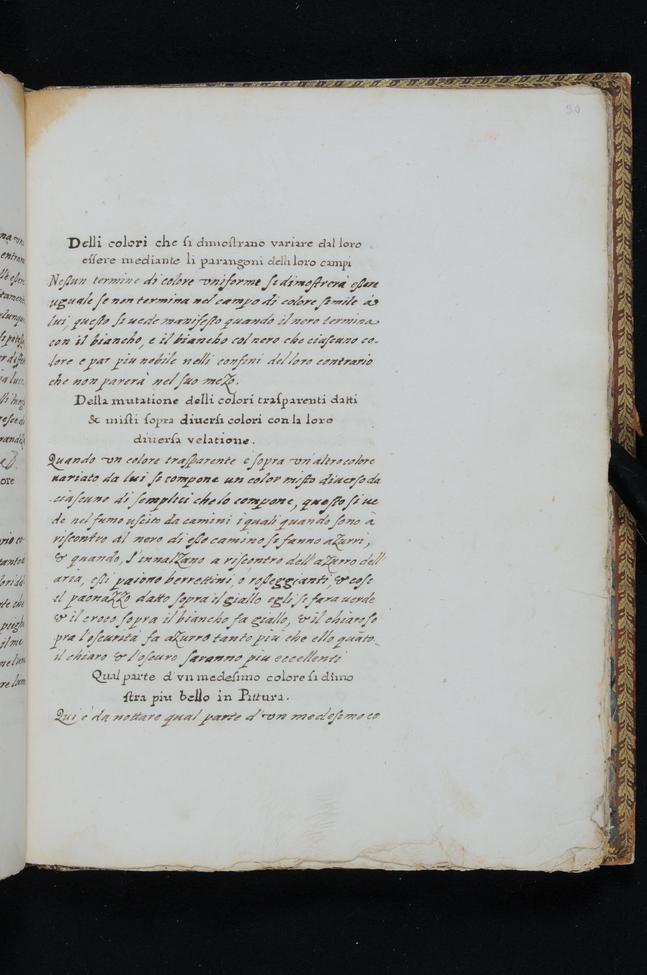 30
Delli colori che si dimostrano variare dal loro
essere mediante li parangoni delli loro campi
Nessun termine di colore vniforme si dimostrerà essere
uguale se non termina nel campo di colore simile à
lui, questo si uede manifesto quando il nero termina
con il biancho, e il biancho col nero che ciascuno co-
lore e par piu nobile nelli confini del loro contrario
che non parerà nel suo meZo.
Della mutatione delli colori trasparenti datti
& misti sopra diuersi colori con la loro
diuersa velatione.
Quando vn colore trasparente è sopra vn'altro colore
uariato da lui si compone un color misto diuerso da
ciascuno di semplici che lo compone, questo si ue
de nel fumo uscito da camini i quali quando sono à
riscontro al nero di esse camino se fanno aZurri,
& quando, s'innalZano a riscontro dell'aZurro dell'
aria, essi paiono berrettini, o rosseggianti, & cose
il paonaZZo datto sopra il giallo egli se fara uerde
& il croco sopra il biancho fa giallo, & il chiaro so
pra l'oscurità fa aZurro tanto più che elle quāto
il chiaro & l'oscuro saranno piu eccellenti
Qual parte d'vn medesimo colore si dimo
stra piu bello in Pittura.
Qui è da nottare qual parte d'vn medesimo co